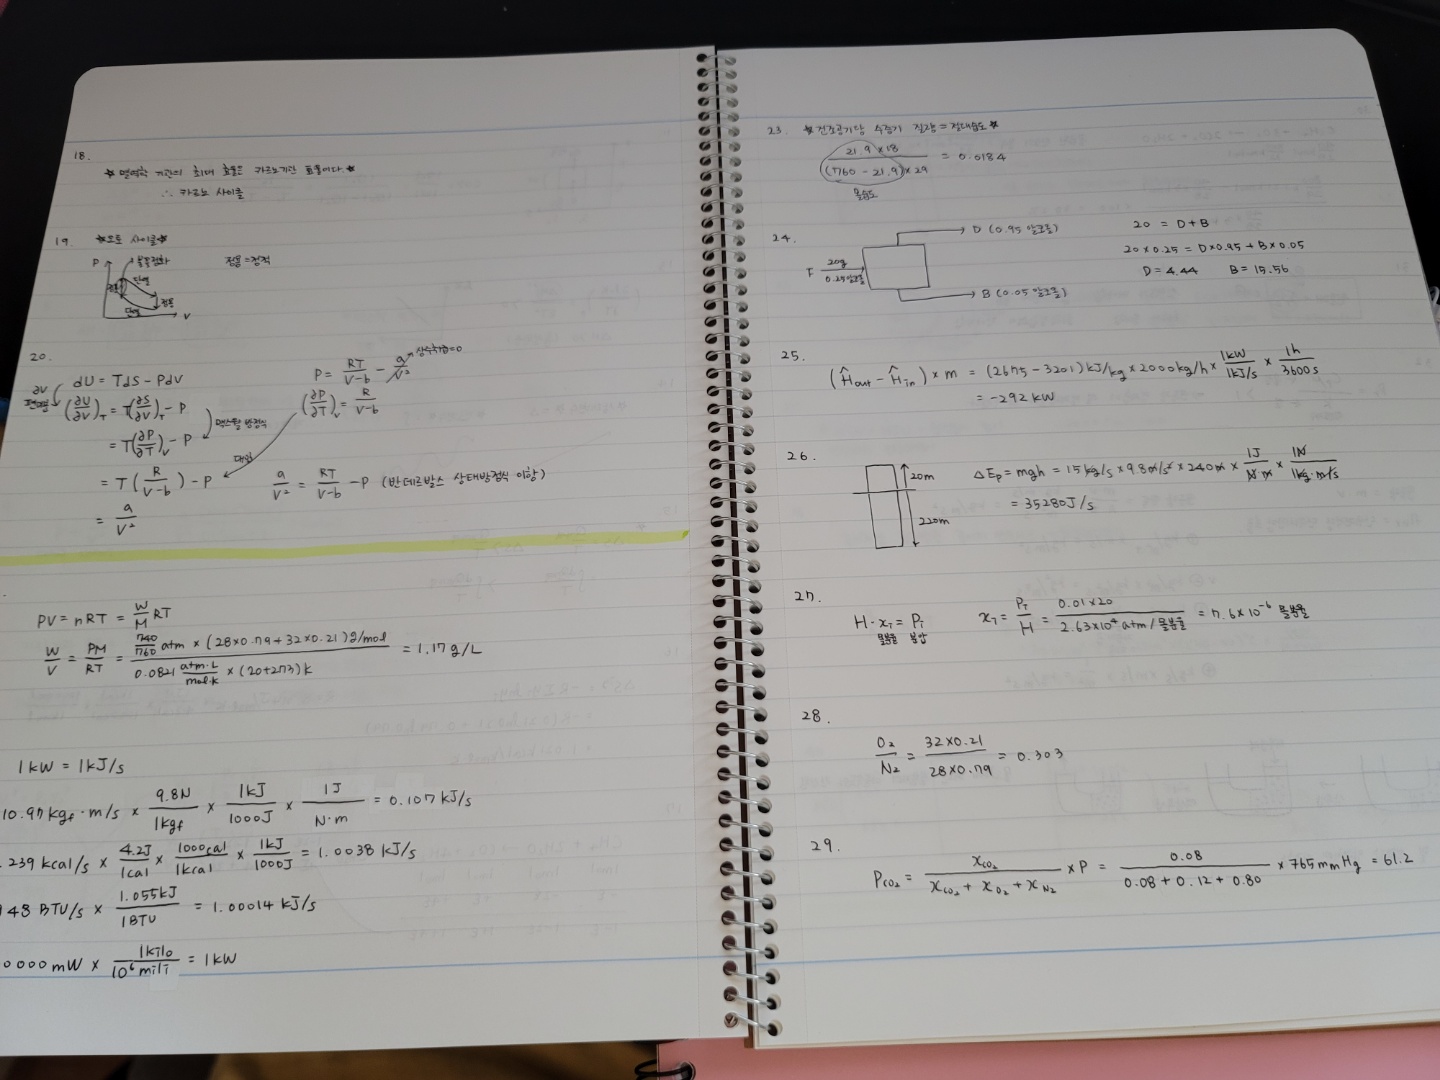 18.
★ 열역학 기관의 최대 효율은 카르노기관 효율이다.★
∴ 카르노 사이클
19. ★오토 사이클★
P
불꽃점화
단열
정용
정용
단열
V
정용 = 정적
20.
∂V 편미분
dU = TdS - PdV
(∂U/∂V)_T = T(∂S/∂V)_T - P
맥스웰 방정식
= T(∂P/∂T)_V - P
대입
= T(R/(V-b)) - P
= a/V²
P = RT/(V-b) - a/V² 상수취급=0
(∂P/∂T)_V = R/(V-b)
a/V² = RT/(V-b) - P (반데르발스 상태방정식 이항)
PV = nRT = W/M RT
W/V = PM/RT = (740/760 atm × (28×0.79+32×0.21)g/mol)/(0.0821 atm·L/mol·k × (20+273)k) = 1.17g/L
1kW = 1kJ/s
10.97kgf·m/s × 9.8N/1kgf × 1kJ/1000J × 1J/N·m = 0.107 kJ/s
.239 kcal/s × 4.2J/1cal × 1000cal/1kcal × 1kJ/1000J = 1.0038 kJ/s
948 BTU/s × 1.055kJ/1BTU = 1.00014 kJ/s
0000mW × 1kilo/10⁶mili = 1kW
23. ★건조공기당 수증기 질량 = 절대습도★
(21.9×18)/((760-21.9)×29) = 0.0184
몰습도
24.
F 20g 0.25알코올
D (0.95 알코올)
B (0.05 알코올)
20 = D+B
20×0.25 = D×0.95 + B×0.05
D=4.44 B=15.56
25.
(Ĥout - Ĥin) × m = (2675-3201)kJ/kg × 2000kg/h × 1kW/1kJ/s × 1h/3600s
= -292kW
26.
20m
220m
ΔEp = mgh = 15kg/s × 9.8m/s² × 240m × 1J/N·m × 1N/1kg·m/s
= 35280J/s
27.
H·x_T = P_T
몰분율 분압
x_T = P_T/H = (0.01×20)/(2.63×10⁴ atm/몰분율) = 7.6×10⁻⁶ 몰분율
28.
O₂/N₂ = (32×0.21)/(28×0.79) = 0.303
29.
P_CO₂ = x_CO₂/(x_CO₂ + x_O₂ + x_N₂) × P = 0.08/(0.08+0.12+0.80) × 765mmHg = 61.2